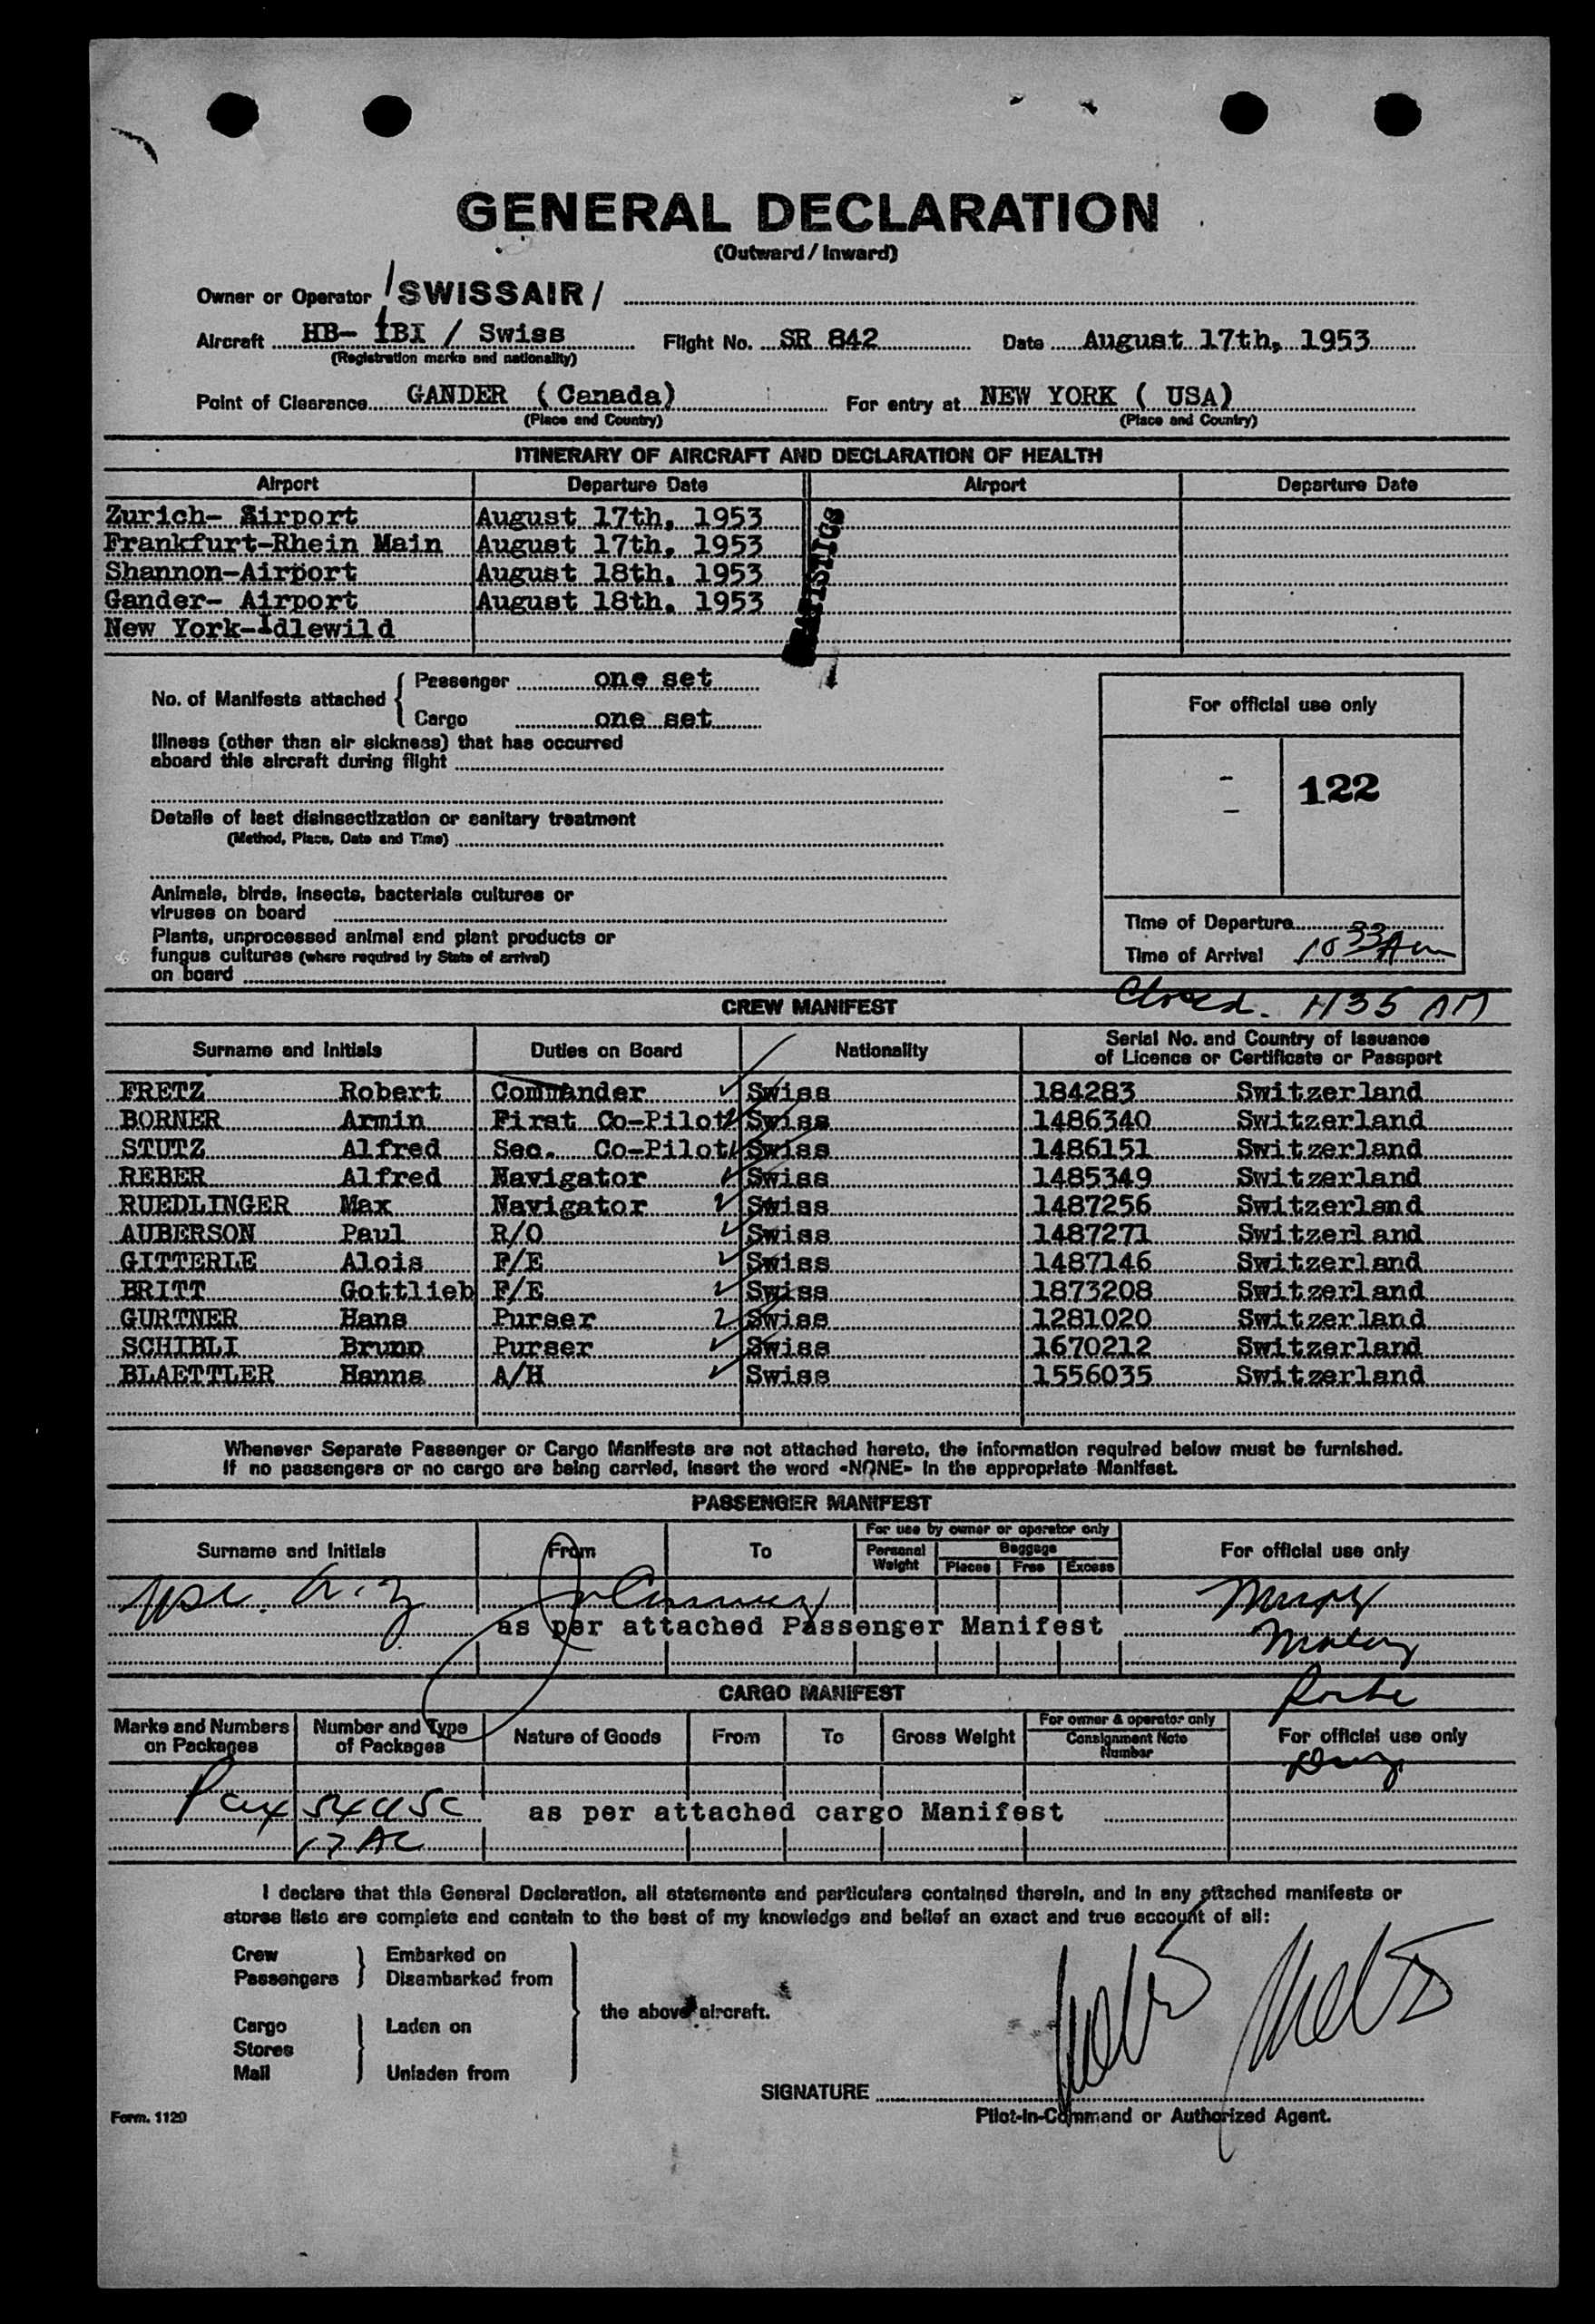 GENERAL DECLARATION
(Outward / Inward)
Owner or Operator / SWISSAIR /
Aircraft HB- IBI / Swiss Flight No. SR 842 Date August 17th, 1953
(Registration marks and nationality)
Point of Clearance GANDER (Canada) For entry at NEW YORK ( USA)
(Place and Country) (Place and Country)
ITINERARY OF AIRCRAFT AND DECLARATION OF HEALTH
Airport Departure Date Airport Departure Date
Zurich- Airport August 17th, 1953
Frankfurt-Rhein Main August 17th, 1953
Shannon-Airport August 18th, 1953
Gander- Airport August 18th, 1953
New York-Idlewild
STATISTICS
No. of Manifests attached { Passenger one set
Cargo one set
For official use only
Illness (other than air sickness) that has occurred
aboard this aircraft during flight
122
Details of last disinsectization or sanitary treatment
(Method, Place, Date and Time)
Animals, birds, insects, bacterials cultures or
viruses on board
Plants, unprocessed animal and plant products or
fungus cultures (where required by State of arrival)
on board
Time of Departure
Time of Arrival 10 33 Am
Closed. 1135 AM
CREW MANIFEST
Surname and Initials Duties on Board Nationality Serial No. and Country of Issuance
of Licence or Certificate or Passport
FRETZ Robert Commander Swiss 184283 Switzerland
BORNER Armin First Co-Pilot Swiss 1486340 Switzerland
STUTZ Alfred Sec. Co-Pilot Swiss 1486151 Switzerland
REBER Alfred Navigator Swiss 1485349 Switzerland
RUEDLINGER Max Navigator Swiss 1487256 Switzerland
AUBERSON Paul R/O Swiss 1487271 Switzerland
GITTERLE Alois F/E Swiss 1487146 Switzerland
BRITT Gottlieb F/E Swiss 1873208 Switzerland
GURTNER Hans Purser Swiss 1281020 Switzerland
SCHIBLI Bruno Purser Swiss 1670212 Switzerland
BLAETTLER Hanns A/H Swiss 1556035 Switzerland
Whenever Separate Passenger or Cargo Manifests are not attached hereto, the information required below must be furnished.
If no passengers or no cargo are being carried, insert the word «NONE» in the appropriate Manifest.
PASSENGER MANIFEST
Surname and Initials From To For use by owner or operator only For official use only
Personal Weight Baggage
Pieces Free Excess
as per attached Passenger Manifest
CARGO MANIFEST
Marks and Numbers on Packages Number and Type of Packages Nature of Goods From To Gross Weight For owner & operator only For official use only
Consignment Note Number
Pax 54 USC as per attached cargo Manifest
I declare that this General Declaration, all statements and particulars contained therein, and in any attached manifests or
stores lists are complete and contain to the best of my knowledge and belief an exact and true account of all:
Crew } Embarked on
Passengers } Disembarked from
the above aircraft.
Cargo Laden on
Stores
Mail Unladen from
SIGNATURE
Form. 1120 Pilot-in-Command or Authorized Agent.